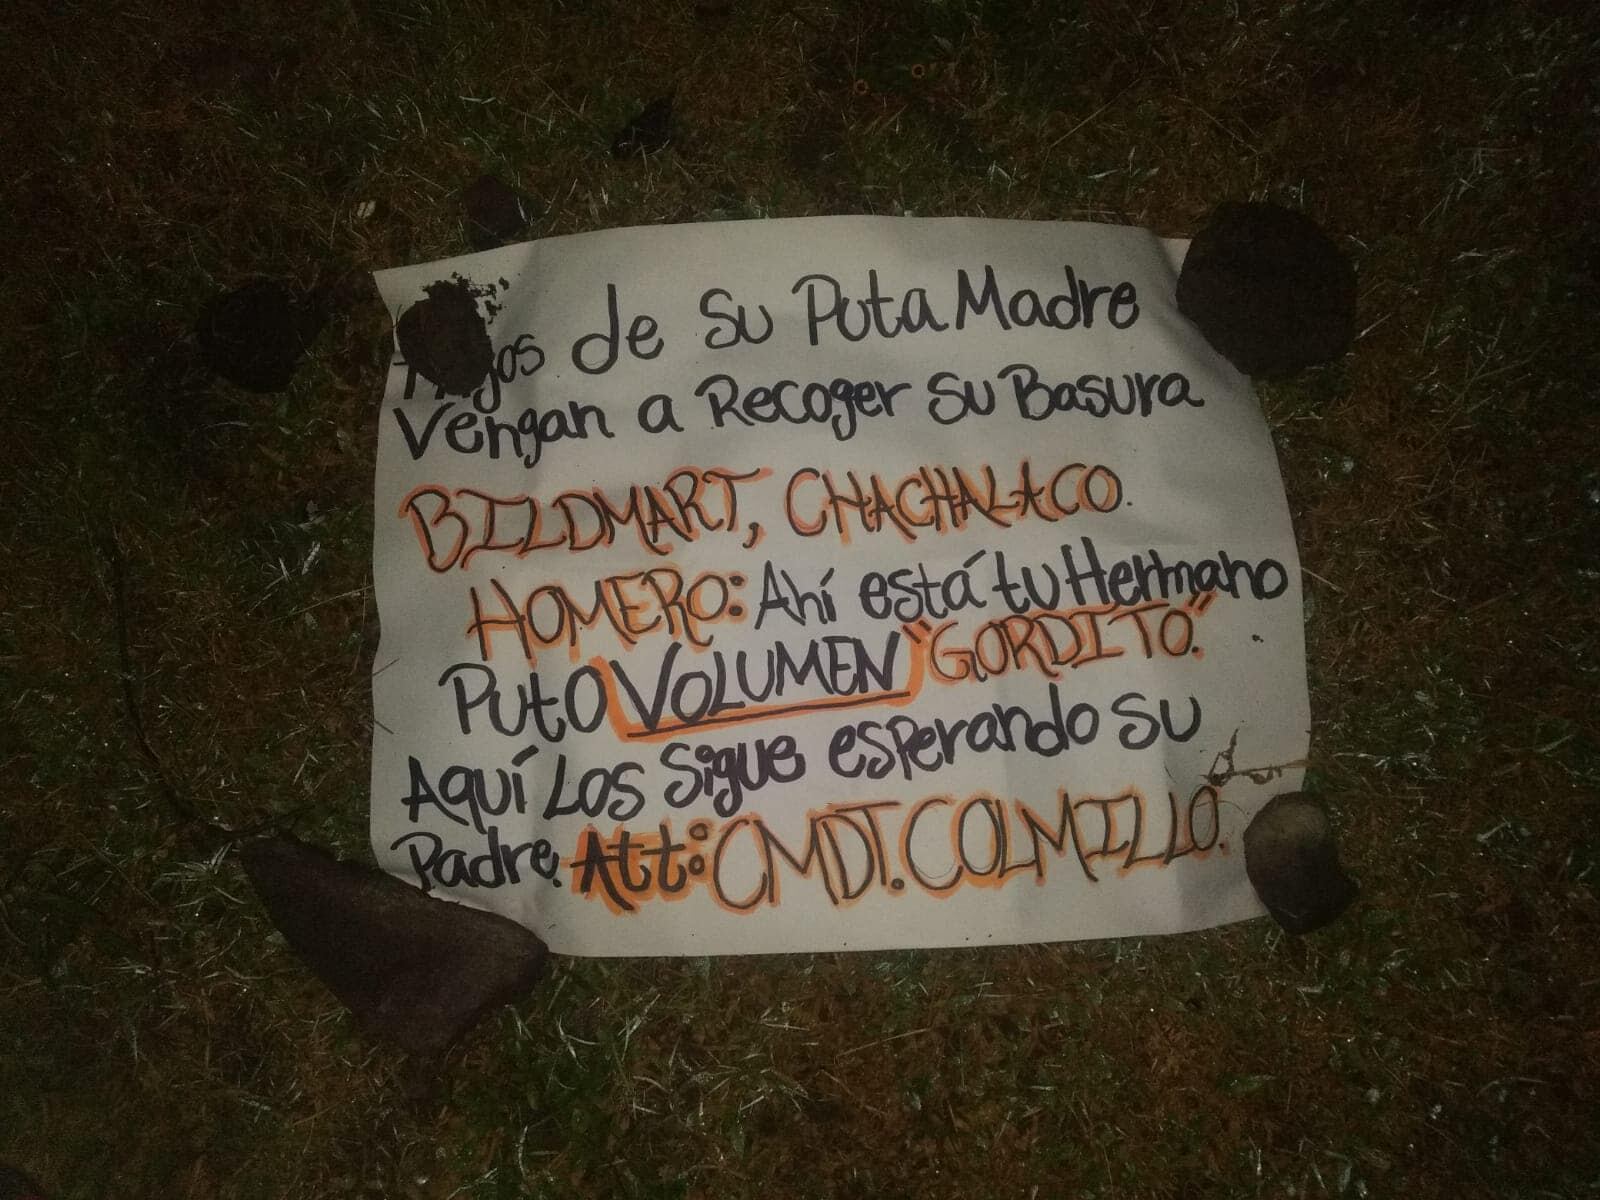 Hijos de su Puta Madre
Vengan a Recoger su Basura
BILDMART, CHACHALACO.
HOMERO: Ahí está tu Hermano
Puto VOLUMEN "GORDITO."
Aquí Los Sigue esperando su
Padre. Att: CMDT. COLMILLO.